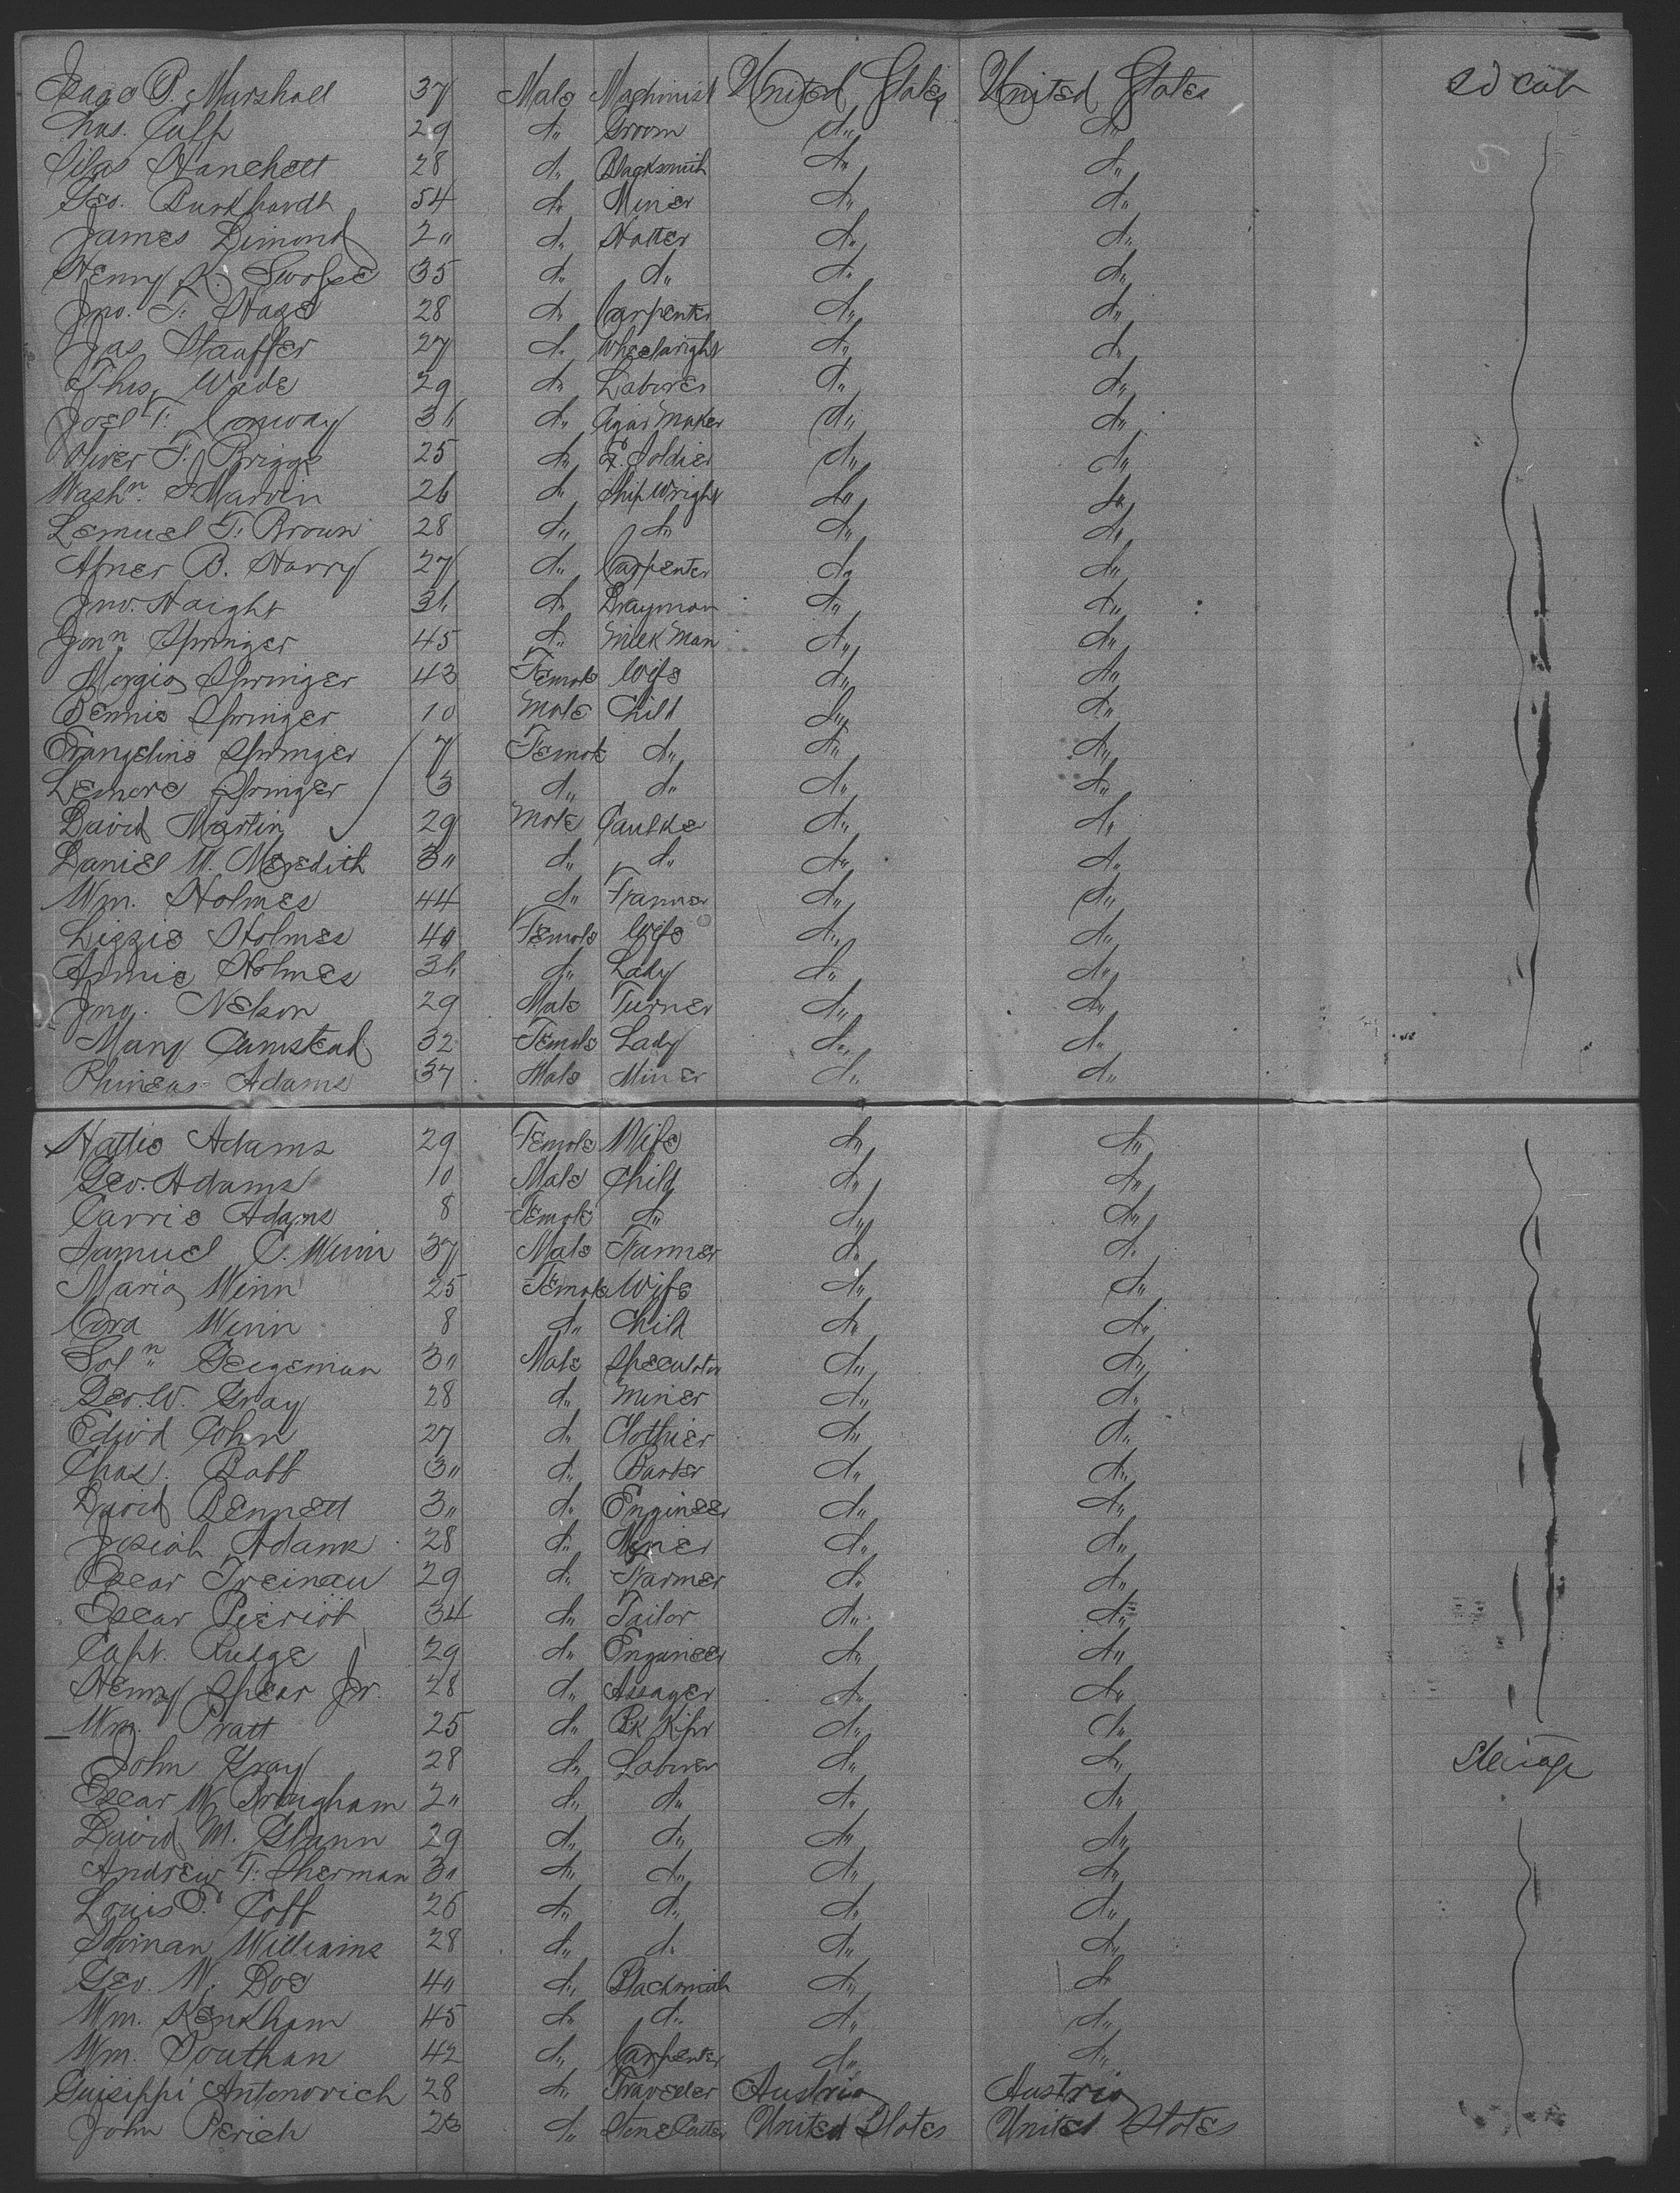 Isaac P. Marshall 37 Male Machinist United States United States 2d Cab
Chas. Culp 29 d,, Groom d,, d,,
Silas Hanchett 28 d,, Blacksmith d,, d,,
Geo. Burkhardt 54 d,, Miner d,, d,,
James Dimond 2,, d,, Hatter d,, d,,
Henry K. Swope 35 d,, d,, d,, d,,
Jno. T. Hage 28 d,, Carpenter d,, d,,
Jas. Stauffer 27 d,, Wheelwright d,, d,,
Thos. Wade 29 d,, Laborer d,, d,,
Joel T. Conway 36 d,, Cigar Maker d,, d,,
Oliver F. Briggs 25 d,, Soldier d,, d,,
Washn. Marvin 26 d,, Ship Wright d,, d,,
Lemuel T. Brown 28 d,, d,, d,, d,,
Abner B. Harry 27 d,, Carpenter d,, d,,
Jno. Haight 36 d,, Drayman d,, d,,
Jonn. Springer 45 d,, Milk Man d,, d,,
Springer 43 Female Wife d,, d,,
Dennis Springer 10 Male Child d,, d,,
Evangeline Springer 7 Female d,, d,, d,,
Springer 3 d,, d,, d,, d,,
David Martin 29 Male d,, d,,
Daniel W. Meredith 3,, d,, d,, d,, d,,
Wm. Holmes 44 d,, d,, d,,
Lizzie Holmes 4,, Female Wife d,, d,,
Annie Holmes 36 d,, Lady d,, d,,
Jno. Nelson 29 Male Turner d,, d,,
Mary 32 Female Lady d,, d,,
Phineas Adams 37 Male Miner d,, d,,
Hattie Adams 29 Female Wife d,, d,,
Geo. Adams 10 Male Child d,, d,,
Carrie Adams 8 Female d,, d,, d,,
Samuel C. Winn 37 Male Farmer d,, d,,
Maria Winn 25 Female Wife d,, d,,
Cora Winn 8 d,, Child d,, d,,
Soln. 3,, Male Speculator d,, d,,
Geo. W. Gray 28 d,, Miner d,, d,,
Edwd Cohn 27 d,, Clothier d,, d,,
Chas. Babb 3,, d,, Barber d,, d,,
David Bennett 3,, d,, Engineer d,, d,,
Josiah Adams 28 d,, Miner d,, d,,
Oscar Treineu 29 d,, Farmer d,, d,,
Oscar Pieriot 34 d,, Tailor d,, d,,
Capt. Rudge 29 d,, Engineer d,, d,,
Henry Spear Jr. 28 d,, Assayer d,, d,,
Wm. Pratt 25 d,, Bk Kpr d,, d,,
John Gray 28 d,, Laborer d,, d,, Steirage
Oscar W. Bringham 2,, d,, d,, d,, d,,
David M. Glann 29 d,, d,, d,, d,,
Andrew T. Sherman 3,, d,, d,, d,, d,,
Louis P. Coff 26 d,, d,, d,, d,,
Williams 28 d,, d,, d,, d,,
Geo. W. Doe 4,, d,, Blacksmith d,, d,,
Wm. Kenkham 45 d,, d,, d,, d,,
Wm. Douthan 42 d,, Carpenter d,, d,,
Guisippi Antonovich 28 d,, Traveler Austria Austria
John Perich d,, Stone Cutter United States United States